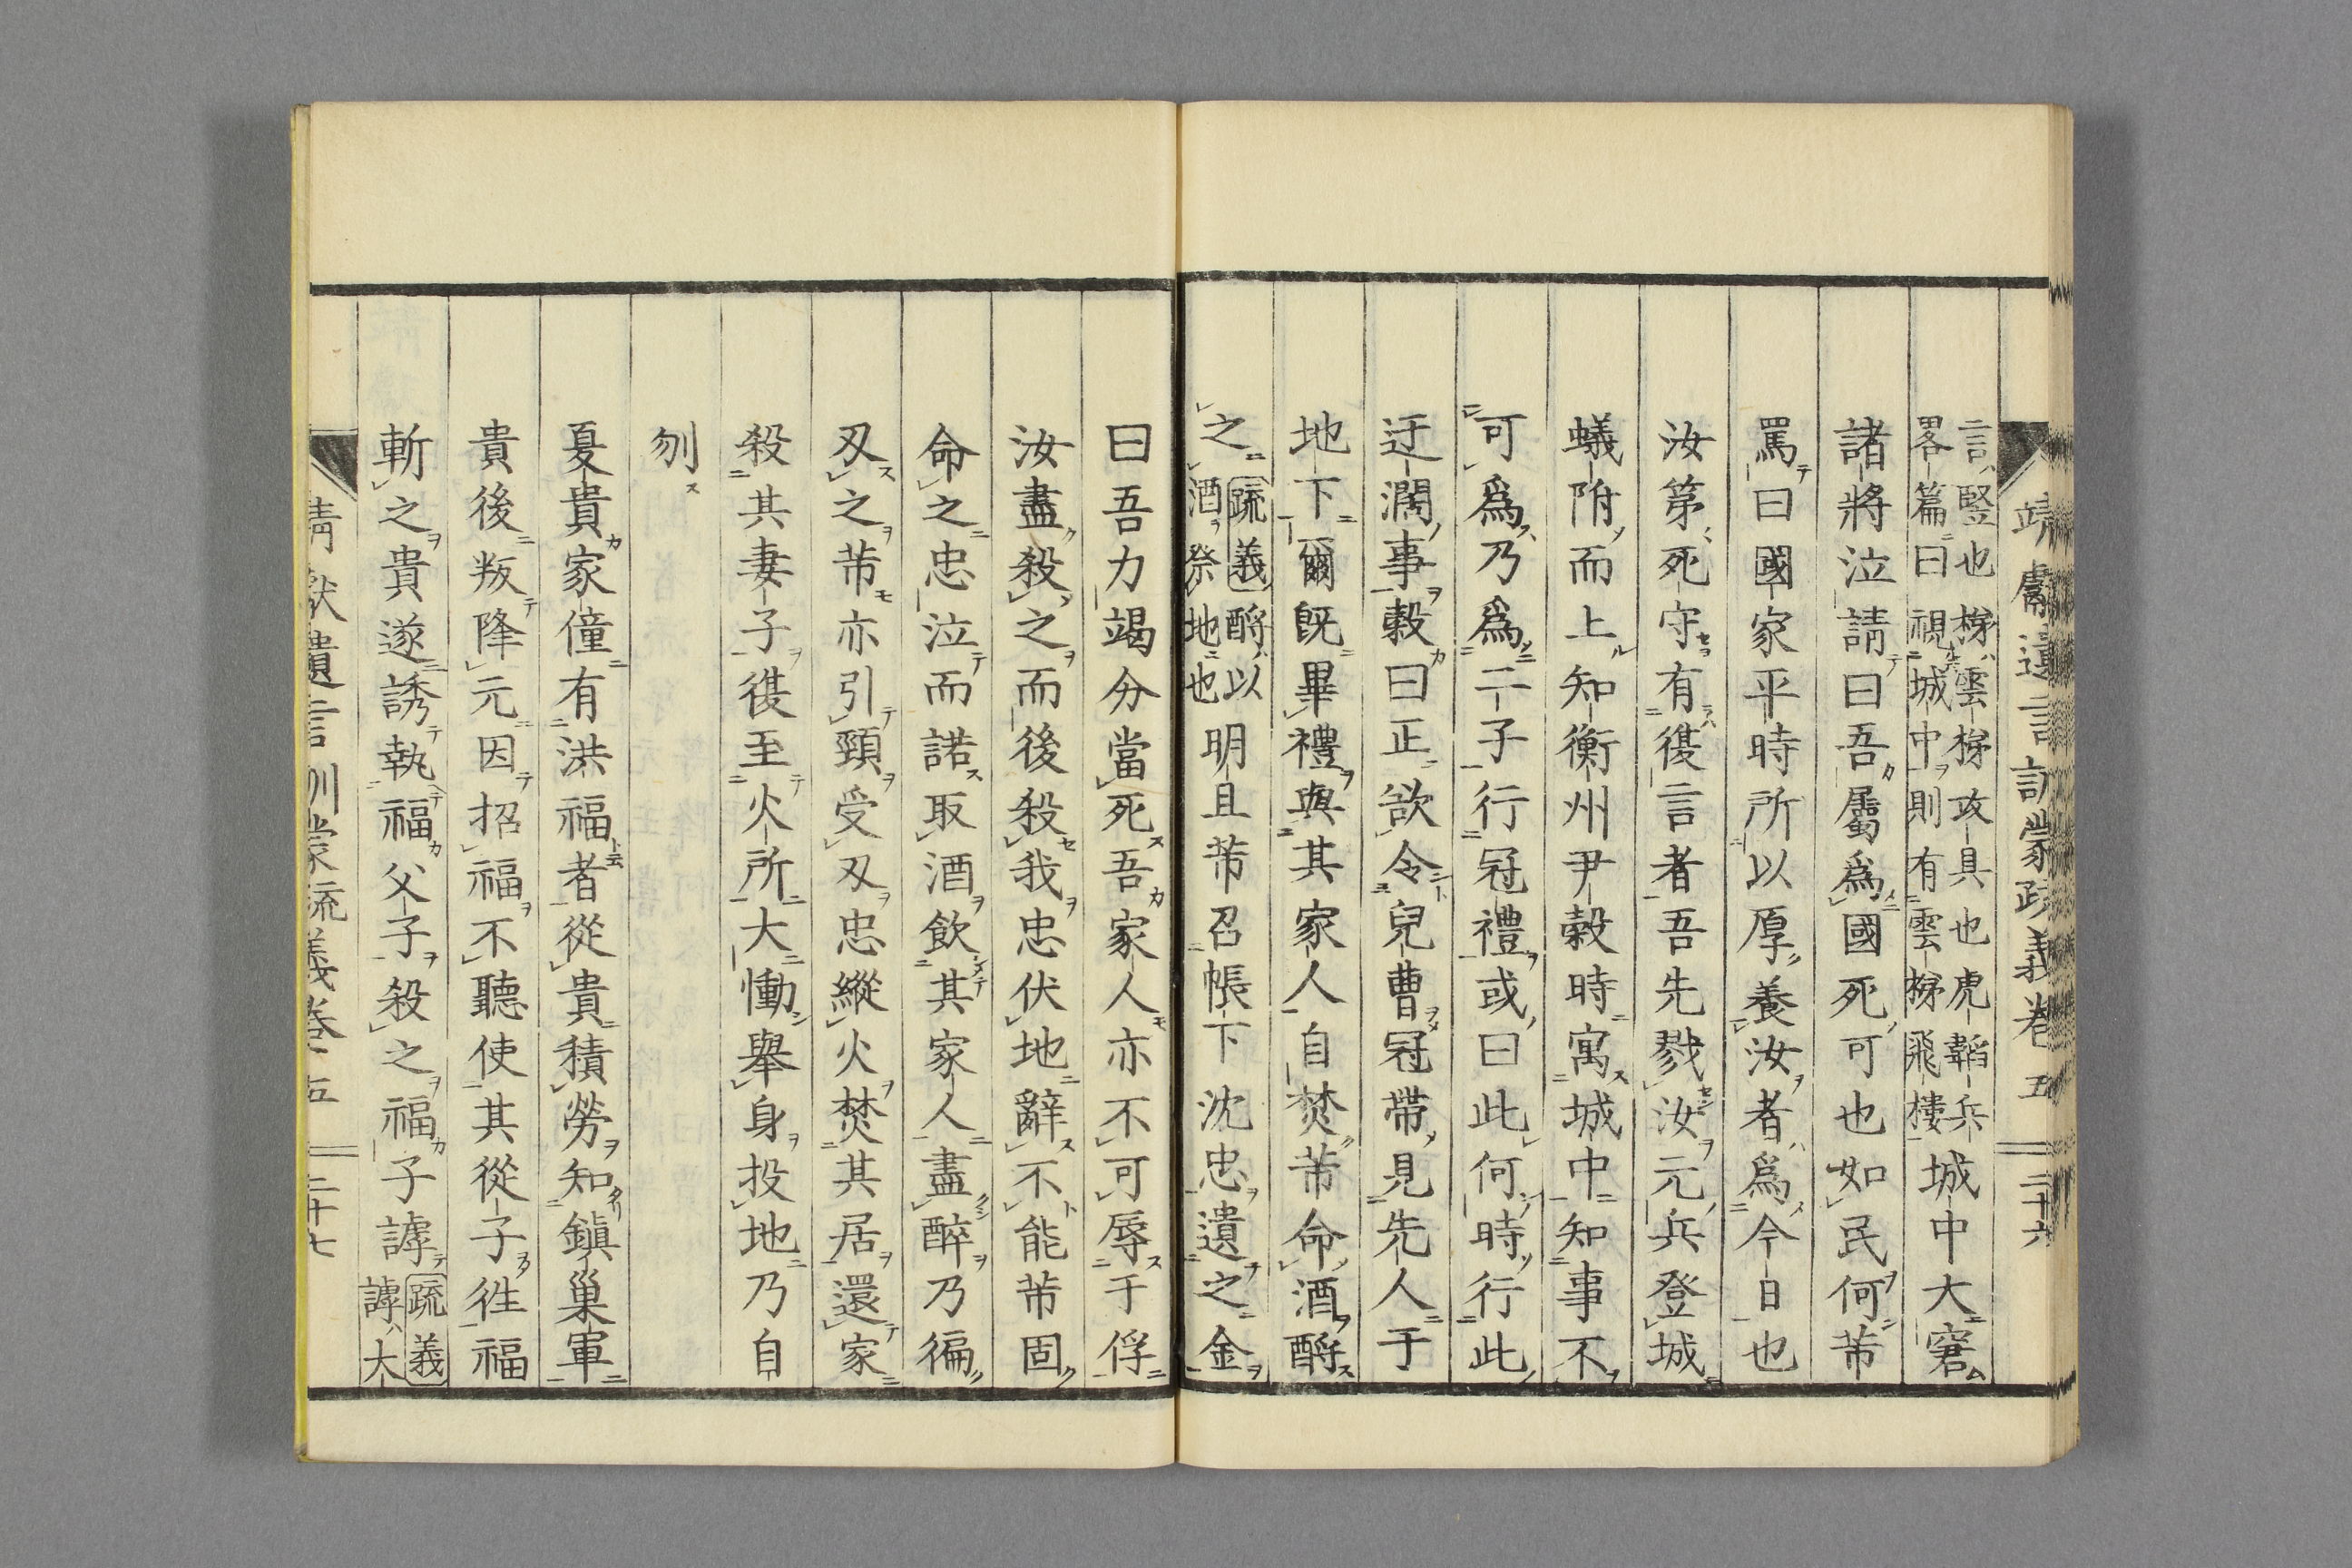 靖獻遺言訓蒙疏義卷五 二十六
言竪也梯雲梯攻具也虎韜兵
畧篇曰視城中則有雲梯飛樓
城中大窘
諸將泣請曰吾屬爲國死可也如民何芾
罵曰國家平時所以厚養汝者爲今日也
汝第死守有復言者吾先戮汝元兵登城
蟻附而上知衡州尹榖時寓城中知事不
可爲乃爲二子行冠禮或曰此何時行此
迂濶事榖曰正欲令兒曹冠帶見先人于
地下爾旣畢禮與其家人自焚芾命酒酹
之
疏義酹以
酒祭地也
明且芾召帳下沈忠遺之金
曰吾力竭分當死吾家人亦不可辱于俘
汝盡殺之而後殺我忠伏地辭不能芾固
命之忠泣而諾取酒飲其家人盡醉乃徧
刄之芾亦引頸受刄忠縱火焚其居還家
殺其妻子復至火所大慟舉身投地乃自
刎
夏貴家僮有洪福者從貴積勞知鎭巢軍
貴後叛降元因招福不聽使其從子徃福
斬之貴遂誘執福父子殺之福子謼
疏義
謼大
靖獻遺言訓蒙疏義卷五 二十七